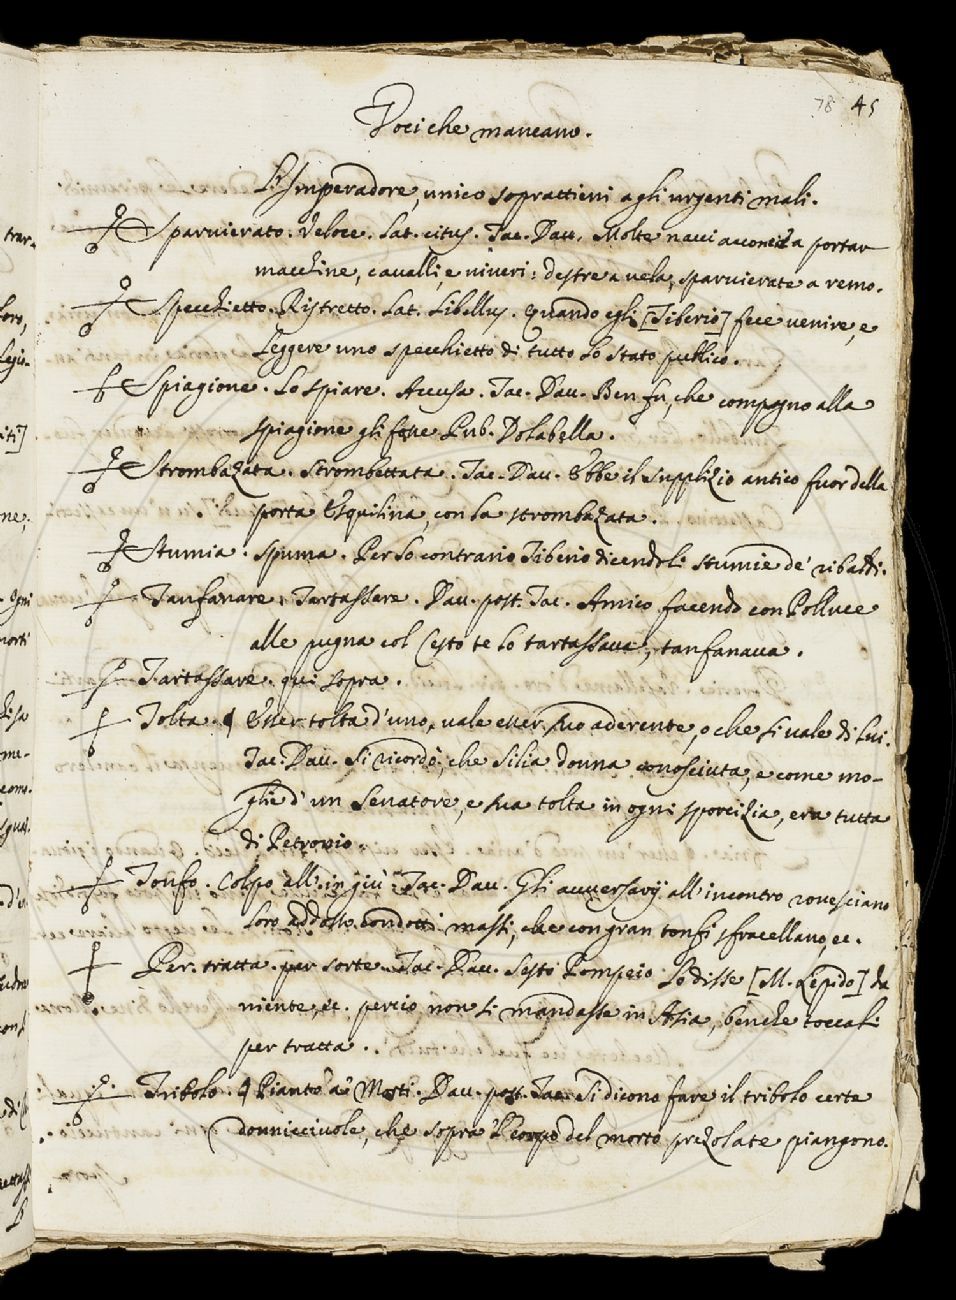 78 45
Voci che mancano.
L'Imperadore, unico soprattieni agli urgenti mali.
Sparvierato. Veloce. Lat. citus. Tac. Dav. Molte navi acconcia portar
macchine, cavalli, e viveri; destre a vela, sparvierate a remo.
Specchietto. Ristretto. Lat. Libellus. Quando egli [Tiberio] fece venire, e
Leggere uno specchietto di tutto lo stato publico.
Spiagione. Lo spiare. Accusa. Tac. Dav. Ben fu, che compagno alla
spiagione gli fosse Pub. Dolabella.
Strombazata. Strombettata. Tac. Dav. Ebbe il supplizio antico fuor della
porta Esquilina, con la strombazata.
Stumia. Spuma. Per lo contrario Tiberio dicendoli stumie de' ribaldi.
Tanfanare. Tartassare. Dav. post. Tac. Amico facendo con Polluce
alle pugna col Cesto te lo tartassava, tanfanava.
Tartassare. qui sopra.
Tolta. ¶ Esser tolta d'uno, vale esser suo aderente, o che si vale di lui.
Tac. Dav. Si ricordò, che Silia donna conosciuta, e come mo-
glie d'un Senatore, e sua tolta in ogni sporcizia, era tutta
di Petronio.
Tonfo. Colpo all'in giù. Tac. Dav. Gli avversarij all'incontro rovesciano
loro addosso condotti massi, che con gran tonfi sfracellano, ec.
Per tratta. per sorte. Tac. Dav. Sesto Pompeio lo disse [M. Lepido] da
niente, ec. perciò non si mandasse in Asia, benche toccali
per tratta.
Tribolo. ¶ Pianto a' Morti. Dav. post. Tac. Si dicono fare il tribolo certe
donnicciuole, che sopra 'l corpo del morto prezolate piangono.